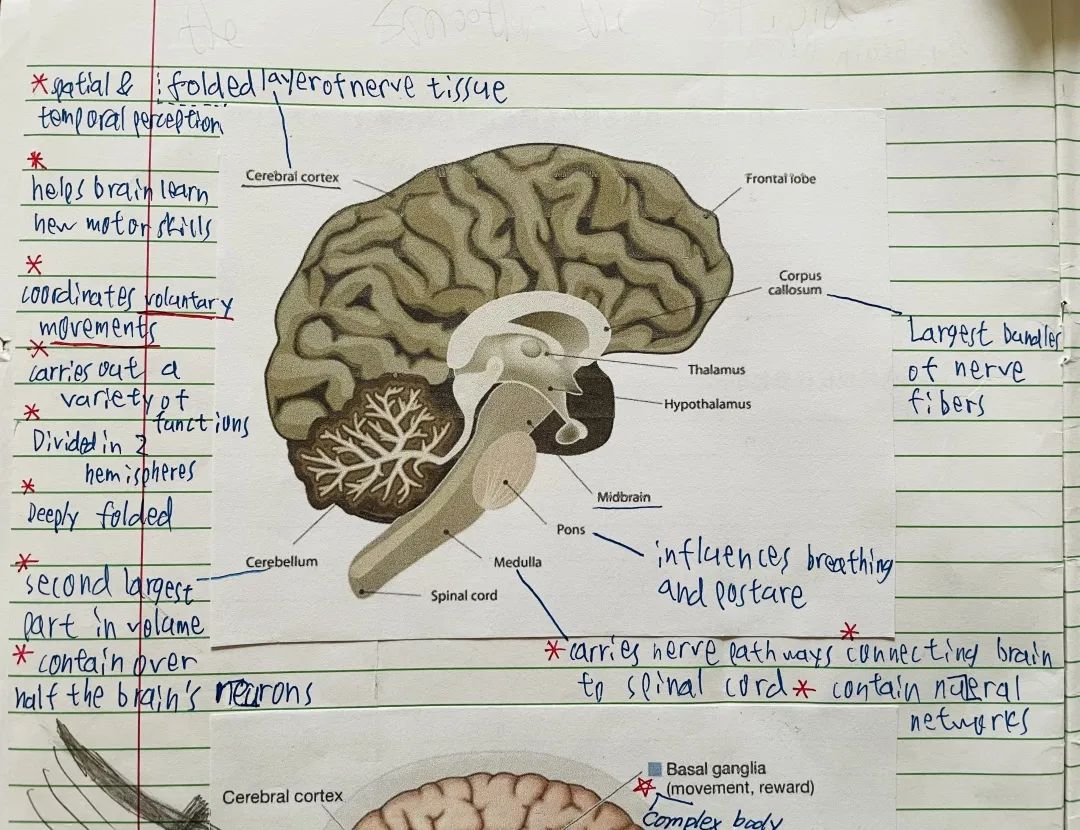 the
* spatial & folded layer of nerve tissue
temporal perception
*
helps brain learn
new motor skills
*
coordinates voluntary
movements
*
carries out a
variety of
functions
*
Divided in 2
hemispheres
*
Deeply folded
*
second largest
part in volume
* contain over
half the brain's neurons
Cerebral cortex
Frontal lobe
Corpus
callosum
Largest bundles
of nerve
fibers
Thalamus
Hypothalamus
Midbrain
Pons
influences breathing
and postare
Cerebellum
Medulla
Spinal cord
* carries nerve pathways * connecting brain
to spinal cord * contain nueral
networks
Cerebral cortex
Basal ganglia
(movement, reward)
Complex body